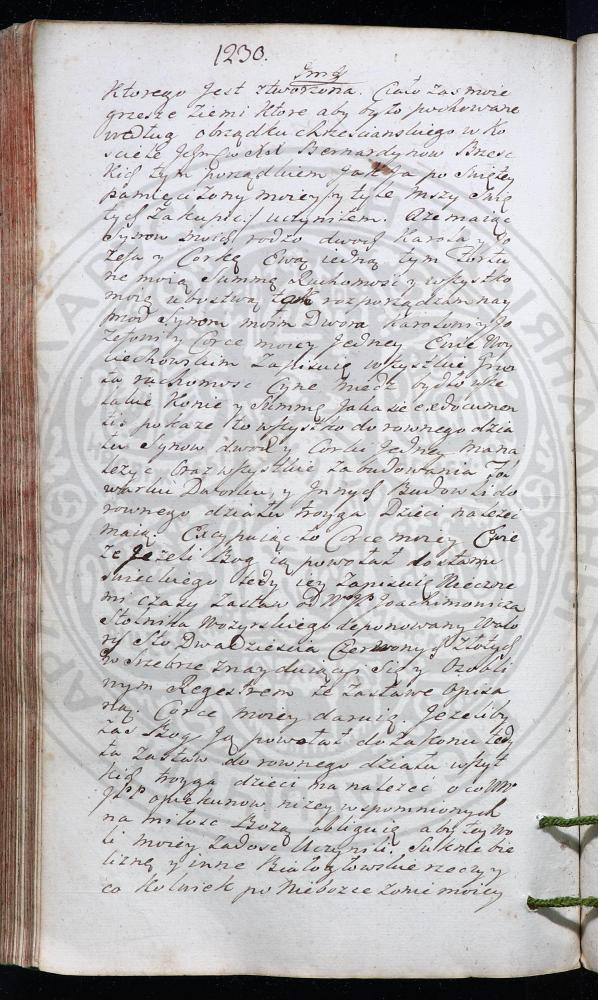 1230.
Ktorego Jest ztworzona. Ciało zas moie
grzeszne Ziemi Ktore aby było pochowane
według obrządku chrzescianskiego w Ko
sciele Bernardynow Brzesc
kich tym porządkiem Jak Ja po Swiętey
pamięci Zony moiey y tyle Mszy Swię
tych Zakupic uczyniłem. A że maiąc
Synow moich dwoch Karola y Jo
zefa y Corkę Ewę iedną tym Fortu
nę moią Summę Ruchomosc y wszystko
moie ubostwo tak rozporządzam nay
przod Synom moim Dwom Karolowi y Jo
zefowi y Corce moiey Jedney Ewie Woy
ciechowskim Zapisuię wszystkie
ruchomosc Cynę miedz bydło wsze
lakie Konie y Summę Jaka się z dokumen
tu pokaże to wszystko do rownego dzia
łu Synow dwoch y Corki Jedney ma na
lezyc Oraz wszystkie Zabudowania Fol
warku y Innych do
rownego działu troyga Dzieci nalezec
maią. Excypuiąc to Corce moiey Ewie
że Jeżeli Bog ią powołał do stanu
swieckiego tedy iey Zapisuię wieczne
mi czasy Zastaw od Joachimowicza
Stolnika Mozyrskiego deponowany Walo
ru Sto Dwadziescia Czerwonych Złotych
w Srzebrze znayduiący Się y Osobli
wym Regestrem te Zastawę opisa
ną Corce moiey daruię. Jeżeliby
zas Bog Ją powołał do Zakonu tedy
ta Zastaw do rownego działu wszyt
kich troyga dzieci ma nalezec o co
opiekunow nizey wspomnionych
na miłosc Bozą obliguię aby tey wo
li moiey Zadosc Uczynili. Suknie bie
liznę y inne Białogłowskie rzeczy y
co Kolwiek po Niebozce Zonie moiey